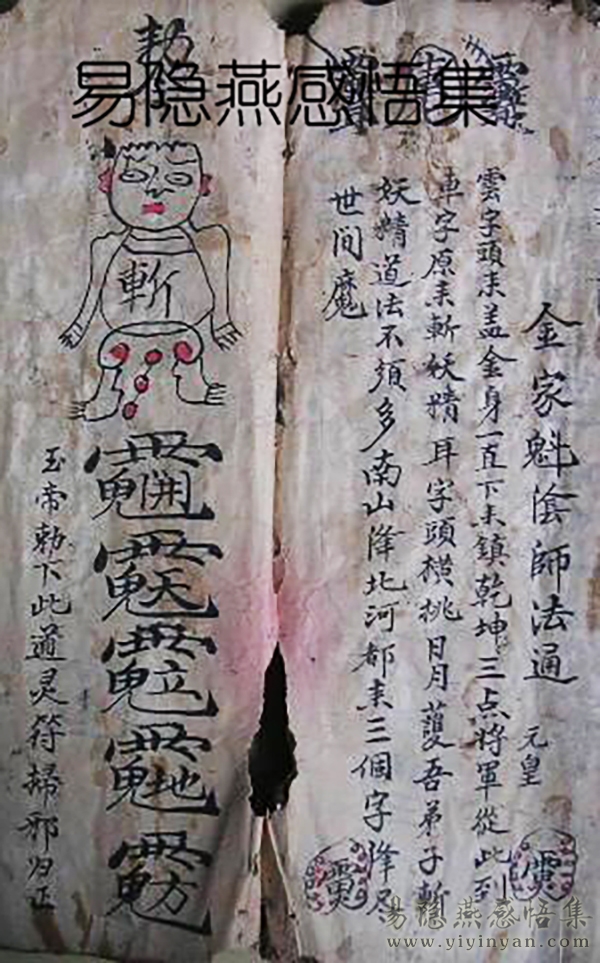 易隐燕感悟集
金家魁陰師法通 元皇
雲字頭耒盖金身一直下耒鎮乾坤三点將軍從此到
車字原耒斬妖精耳字頭横挑日月護吾弟子斬
妖精道法不須多南山降北河都耒三個字降尽
世间魔
敕
斬
玉帝勅下此道灵符掃邪归正
易隐燕感悟集
www.yiyinyan.com